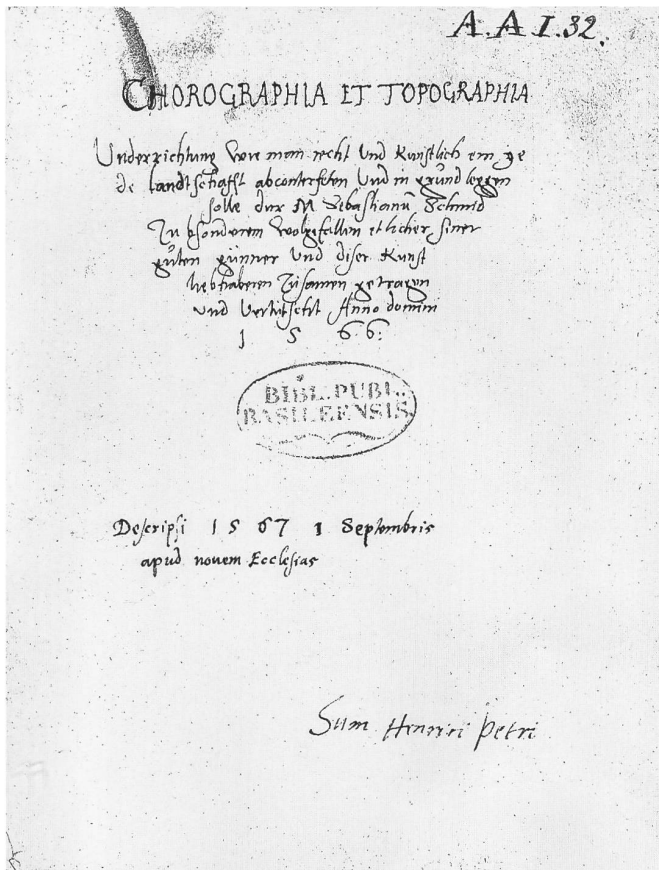 A.A I.32.
CHOROGRAPHIA ET TOPOGRAPHIA
Underrichtung wie man recht und kunstlich ein ye
de landtschafft abconterfeten und in grund leggen
solle durch M Sebastianu Schmid
Zu bsonderem wolgefallen etlicher siner
guten günner und diser kunst
liebhaberen Zusamen getragen
und vertütscht Anno domini
1 5 6 6.
BIBL. PUBL.
BASILEENSIS
Descripsi 1 5 6 7 1 Septembris
apud novem Ecclesias
Sum Henrici Petri